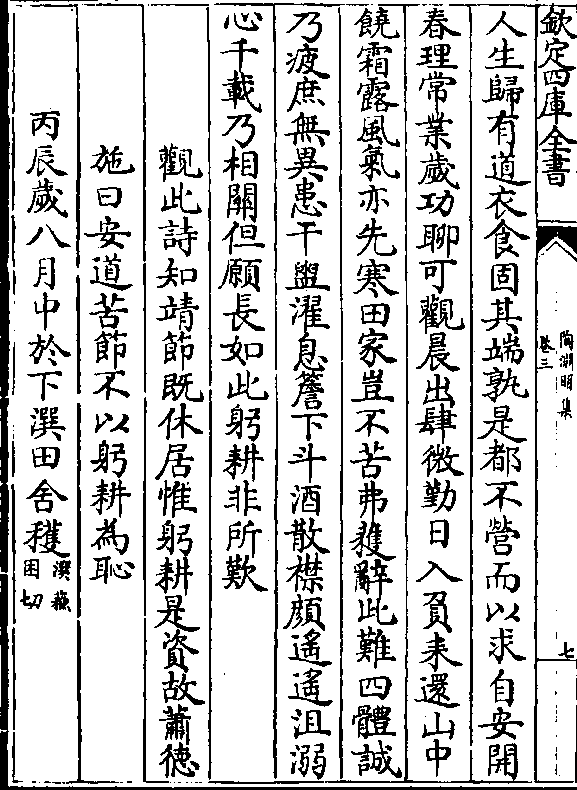 欽定四庫全書
陶淵明集
卷三
七
人生歸有道衣食固其端孰是都不營而以求自安開
春理常業歲功聊可觀晨出肆微勤日入負耒還山中
饒霜露風氣亦先寒田家豈不苦弗獲辭此難四體誠
乃疲庶無異患干盥濯息簷下斗酒散襟顔遙遙沮溺
心千載乃相關但願長如此躬耕非所歎
觀此詩知靖節既休居惟躬耕是資故蕭德
施曰安道苦節不以躬耕為恥
丙辰歲八月中於下潠田舍穫潠蘇困切